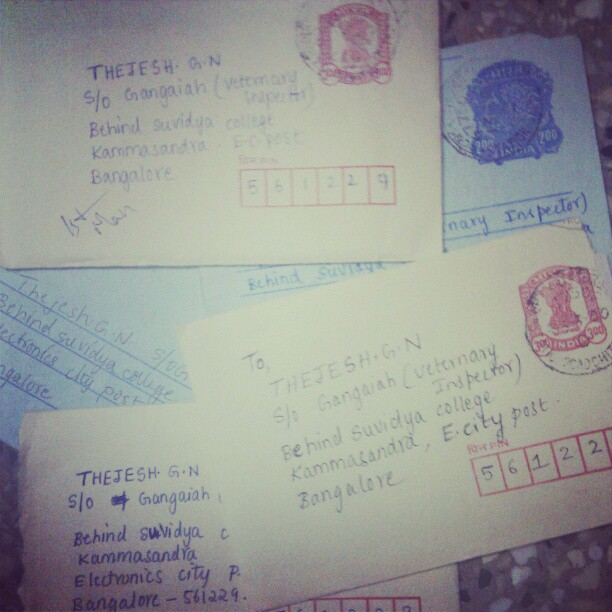 THEJESH. G.N
S/o Gangaiah (Veternary
Inspector)
Behind Suvidya college
Kammasandra E.C post
Bangalore
FOR PIN
5 6 1 2 2 9
1st Man
200 200
INDIA
nary Inspector)
Behind Suvidya
Thejesh G.N S/o G
Behind Suvidya college
lectronics city post
ngalore
300 300
INDIA
To,
THEJESH.G.N
S/o Gangaiah (Veternary
Inspector)
Behind Suvidya college
Kammasandra, E.city post.
Bangalore
FOR PIN
5 6 1 2 2
THEJESH. G.N
S/o Gangaiah
Behind Suvidya c
Kammasandra
Electronics city P.
Bangalore - 561229.